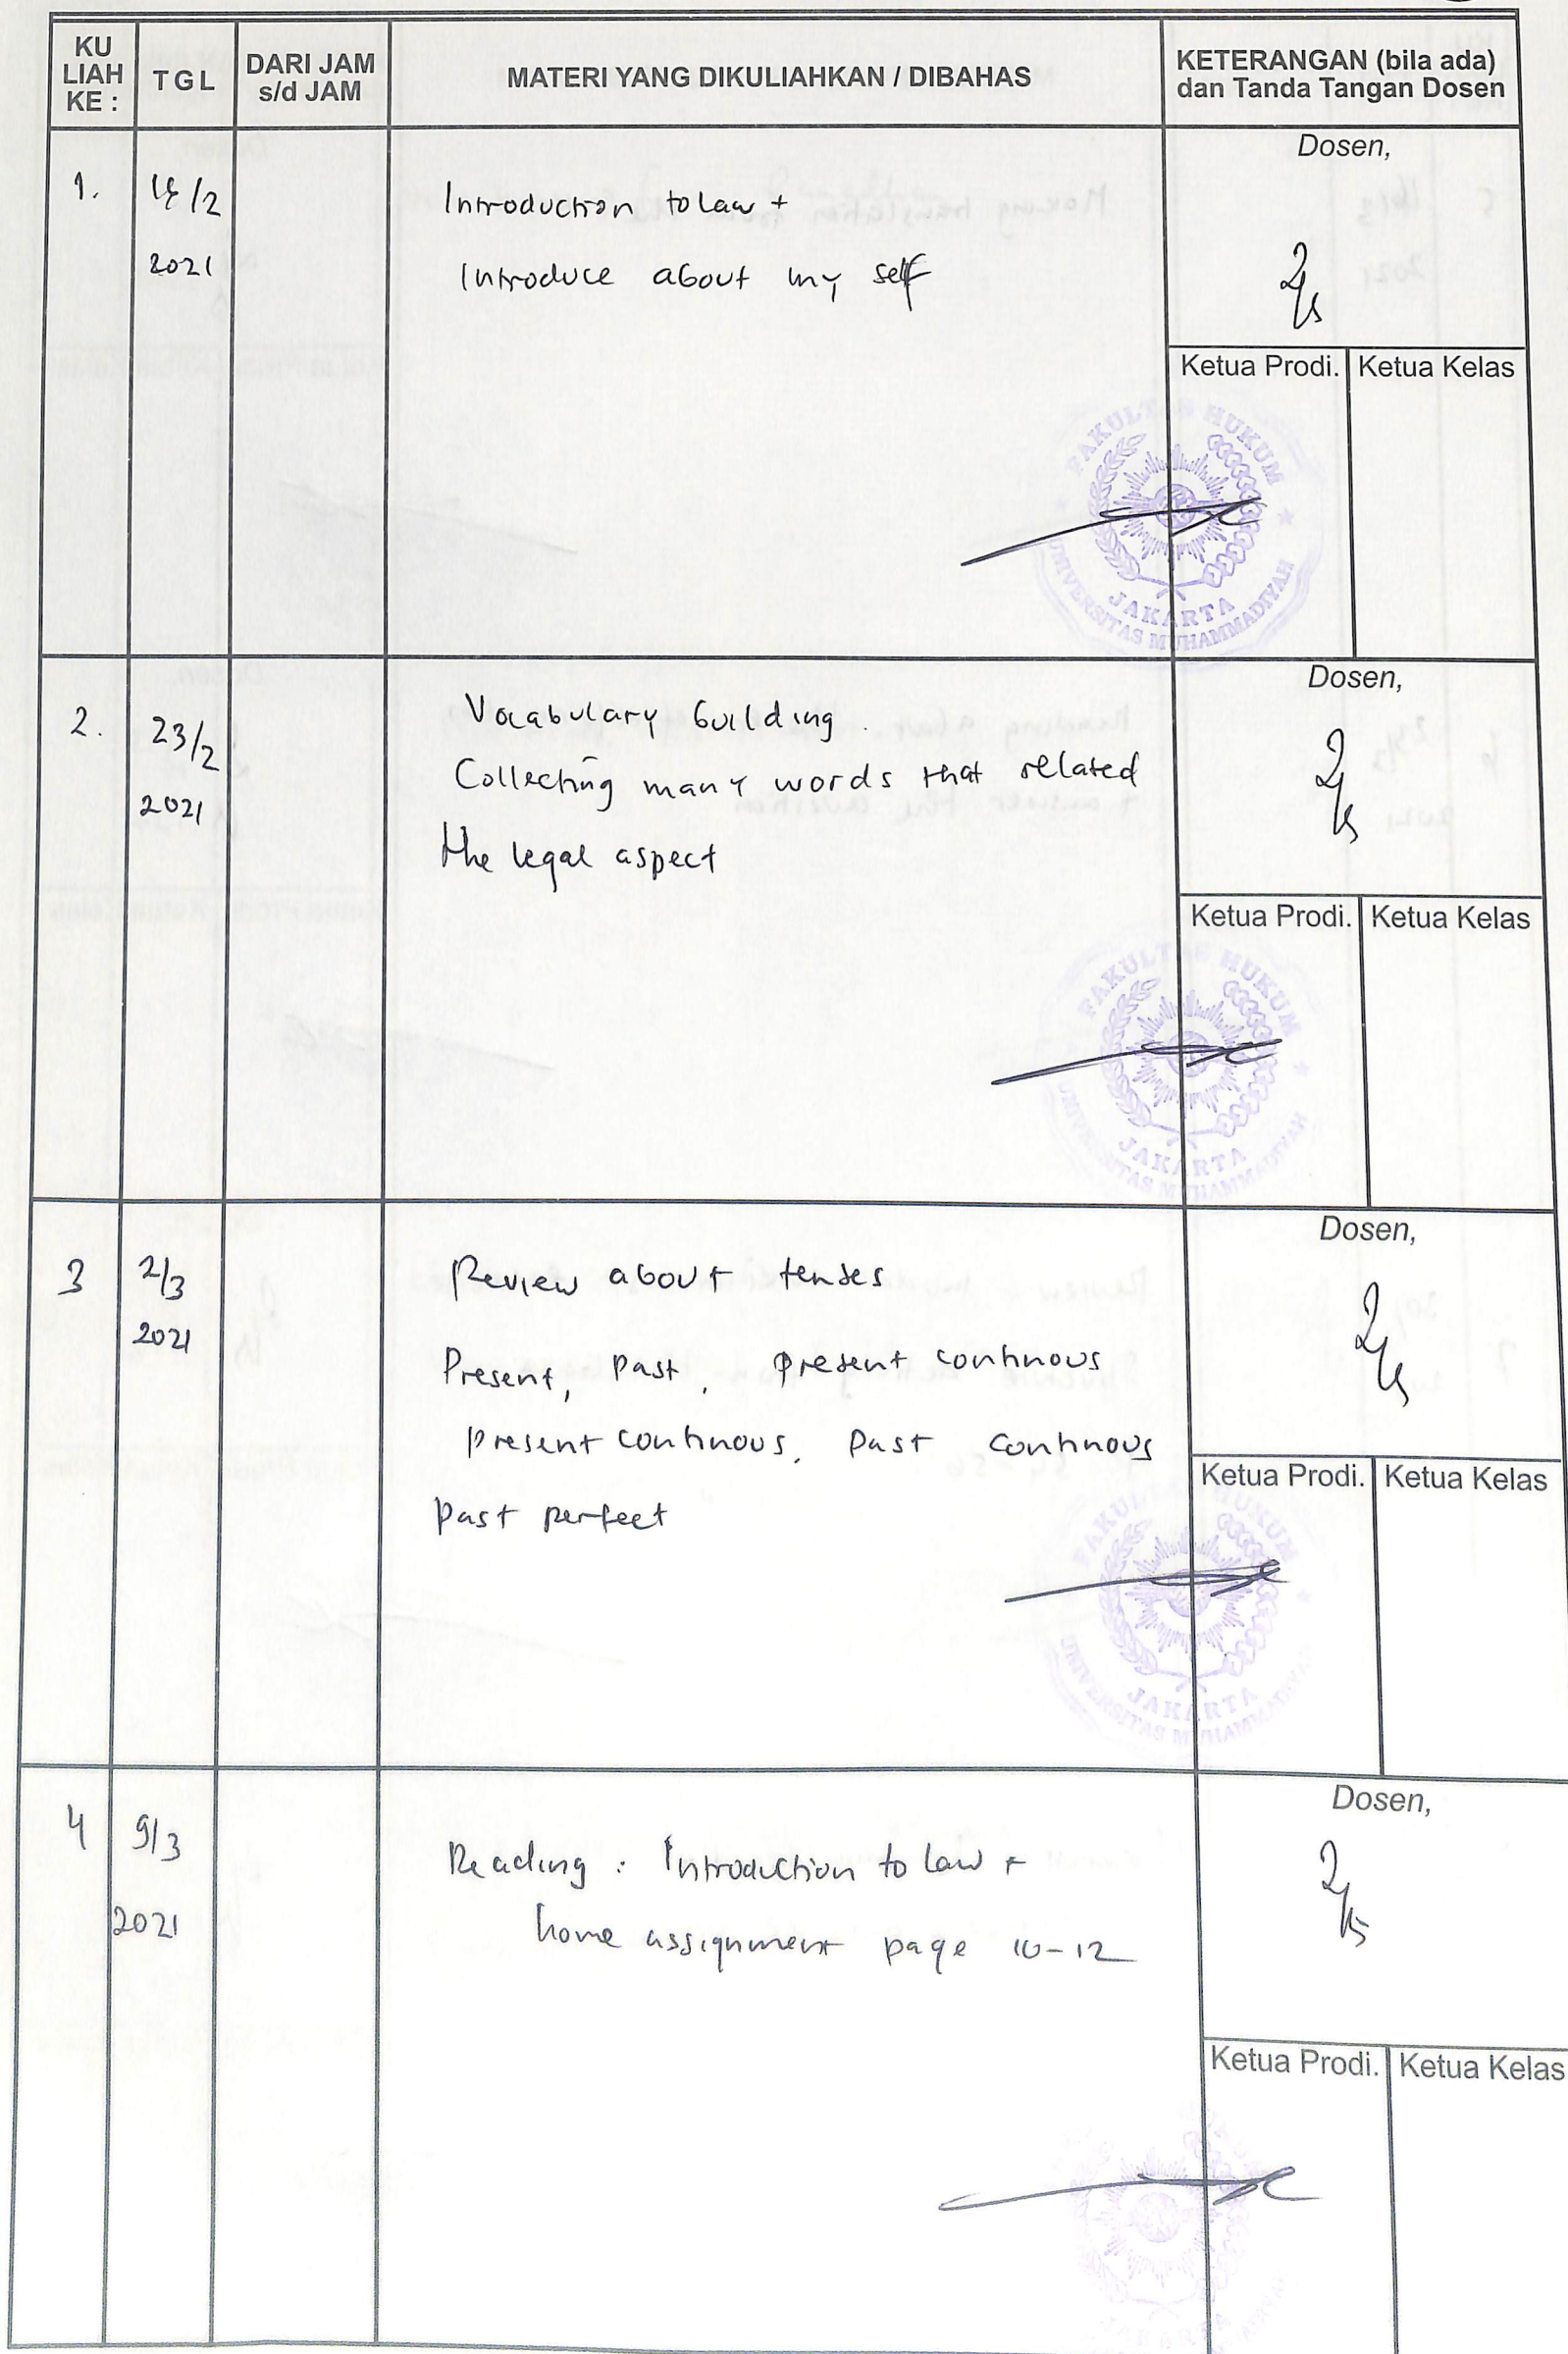 KU LIAH KE :
TGL
DARI JAM s/d JAM
MATERI YANG DIKULIAHKAN / DIBAHAS
KETERANGAN (bila ada) dan Tanda Tangan Dosen
1.
/2
2021
Introduction to law +
Introduce about my self
Dosen,
Ketua Prodi.
Ketua Kelas
FAKULTAS HUKUM
UNIVERSITAS MUHAMMADIYAH
JAKARTA
2.
23/2
2021
Vocabulary building.
Collecting many words that related
the legal aspect
Dosen,
Ketua Prodi.
Ketua Kelas
FAKULTAS HUKUM
UNIVERSITAS MUHAMMADIYAH
JAKARTA
3
2/3
2021
Review about tenses
Present, Past, present continous
present continous, Past continous
Past perfect
Dosen,
Ketua Prodi.
Ketua Kelas
FAKULTAS HUKUM
UNIVERSITAS MUHAMMADIYAH
JAKARTA
4
9/3
2021
Reading : Introduction to law +
home assignment page 10-12
Dosen,
Ketua Prodi.
Ketua Kelas
JAKARTA